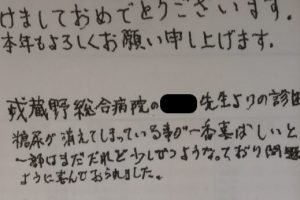 けましておめでとうございます.
本年もよろしくお願い申し上げます.
武蔵野総合病院の 先生よりの診
糖尿が消えてしまっている事が一番喜ばしいと
一部はまだだれど少しずつような。ており問題
ように喜んでおられました。